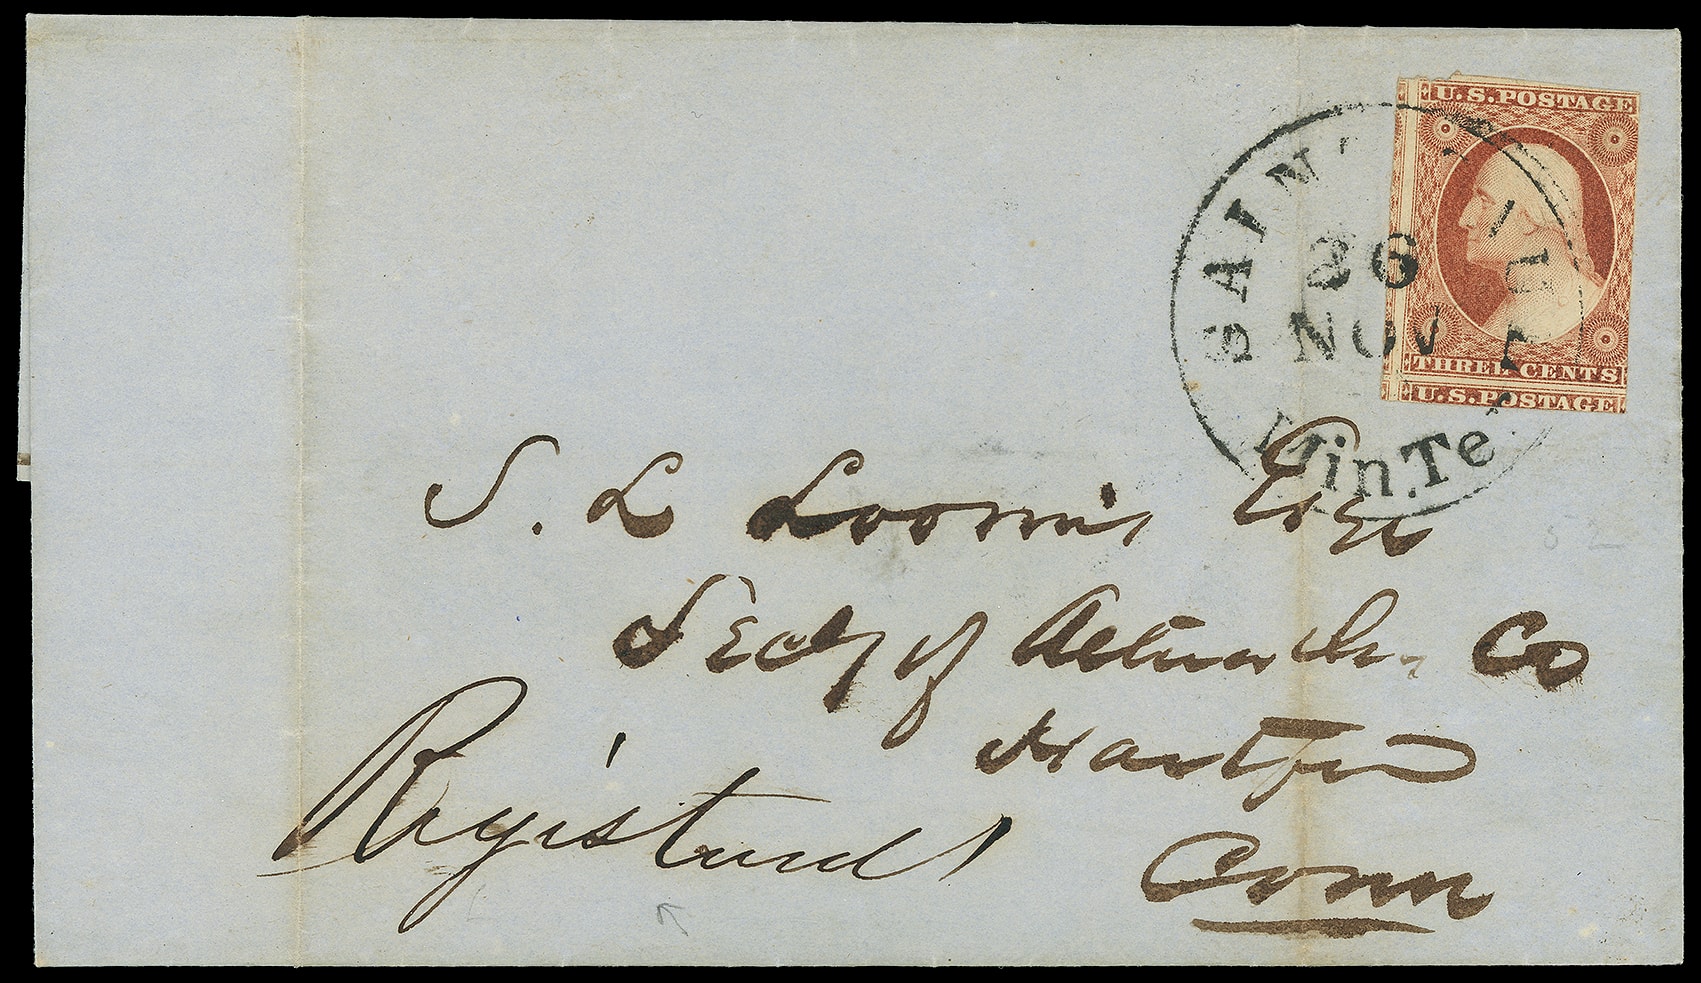 U.S.POSTAGE
THREE CENTS
U.S.POSTAGE
SAINT PAUL
26
NOV
Min.Te.
S. L Loomis Esqr
Secy of Aetna In. Co
Hartford
Conn
Registered
52